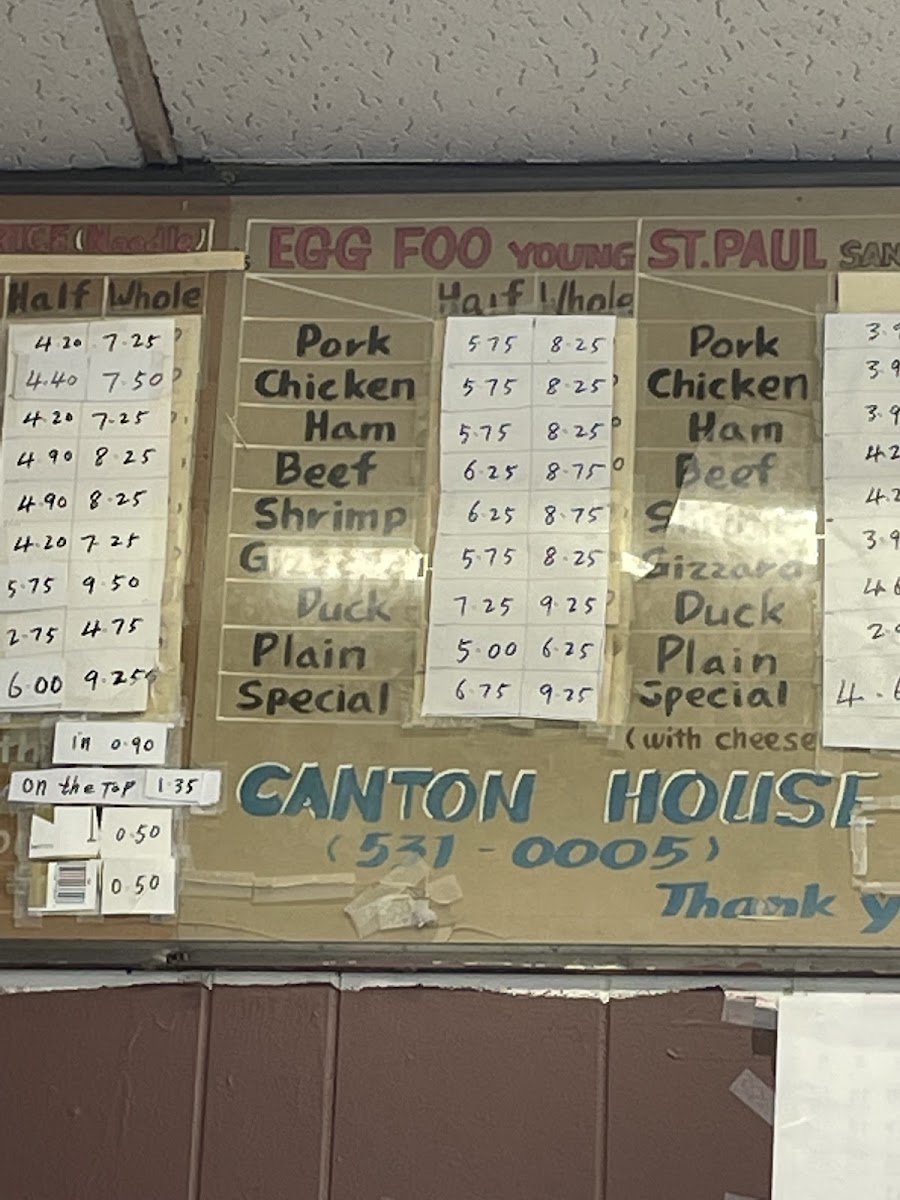 (Noodle) EGG FOO YOUNG ST.PAUL SAN
Half Whole Half Whole
4.20 7.25 Pork 5.75 8.25 Pork 3.9
4.40 7.50 Chicken 5.75 8.25 Chicken 3.9
4.20 7.25 Ham 5.75 8.25 Ham 3.9
4.90 8.25 Beef 6.25 8.75 Beef 4.2
4.90 8.25 Shrimp 6.25 8.75 4.2
4.20 7.25 5.75 8.25 Gizzard 3.9
5.75 9.50 Duck 7.25 9.25 Duck 4.6
2.75 4.75 Plain 5.00 6.25 Plain 2.9
6.00 9.25 Special 6.75 9.25 Special 4.6
(with cheese
in 0.90
on the Top 1.35
0.50
0.50
CANTON HOUSE
(531-0005)
Thank y